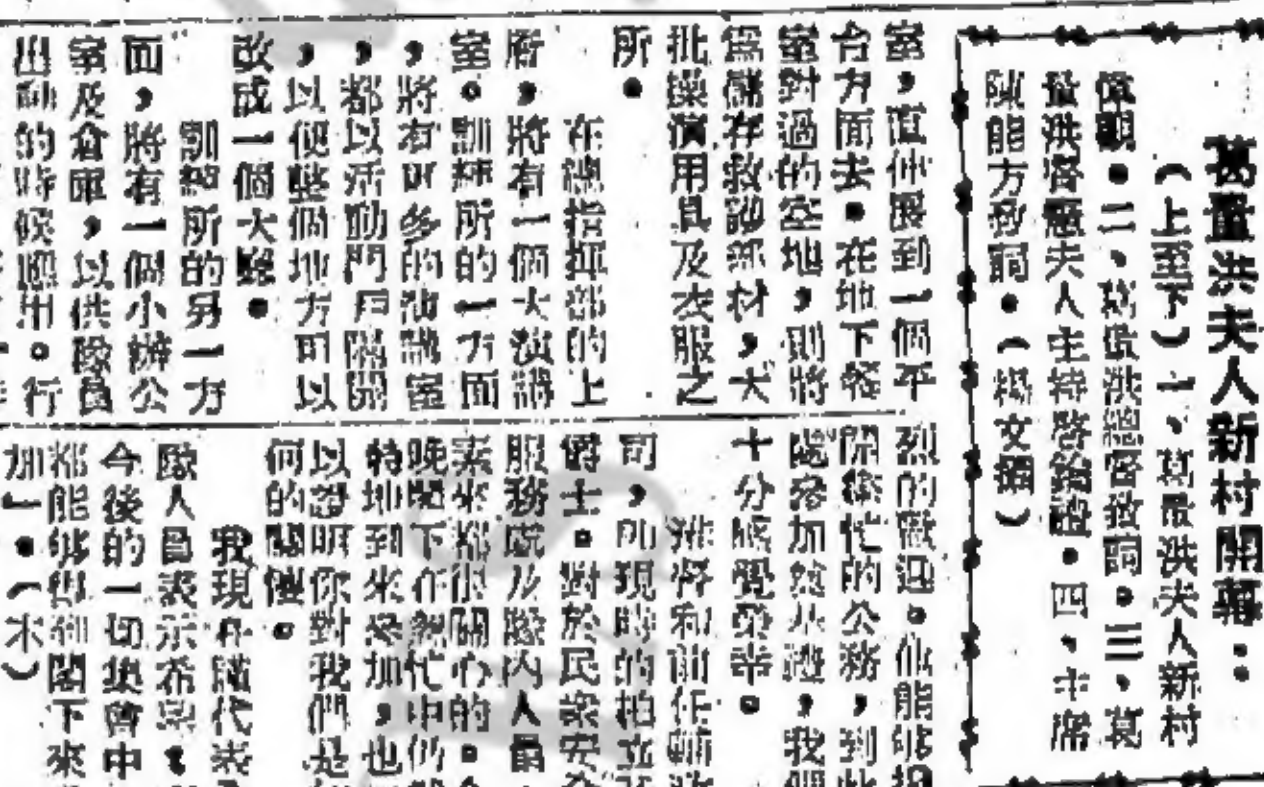 葛量洪夫人新村開幕：
（上至下）一、葛量洪夫人新村
偉觀。二、葛量洪總督致詞。三、葛
量洪督憲夫人主持啓鑰禮。四、主席
陳能方致詞。（楊文攝）
室，直伸展到一個平
台方面去。在地下客
室對過的空地，則將
爲儲存救護器材，大
批操演用具及衣服之
所。
在總指揮部的上
層，將有一個大演講
室。訓練所的一方面
，將有更多的演講室
，都以活動門戶隔開
，以便整個地方可以
改成一個大廳。
訓練所的另一方
面，將有一個小辦公
室及倉庫，以供隊員
出動的時候應用。行
烈的歡迎。他能够
繁忙的公務，到此
加
十分感覺榮幸。
和前任輔政
司，即現時的柏立
爵士。對於民衆安全
服務處及隊內人員，
素來都很關心的。
晚閣下在繁忙中仍
特地到來參加，也
以證明你對我們是
何的關懷。
我現在謹代表
歐人員表示希望，
今後的一切集會中
都能够得到閣下來
加」。（木）